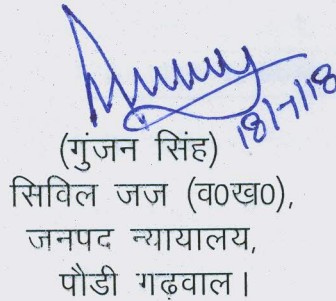 18/7/18
(गुंजन सिंह)
सिविल जज (व0ख0),
जनपद न्यायालय,
पौडी गढ़वाल।